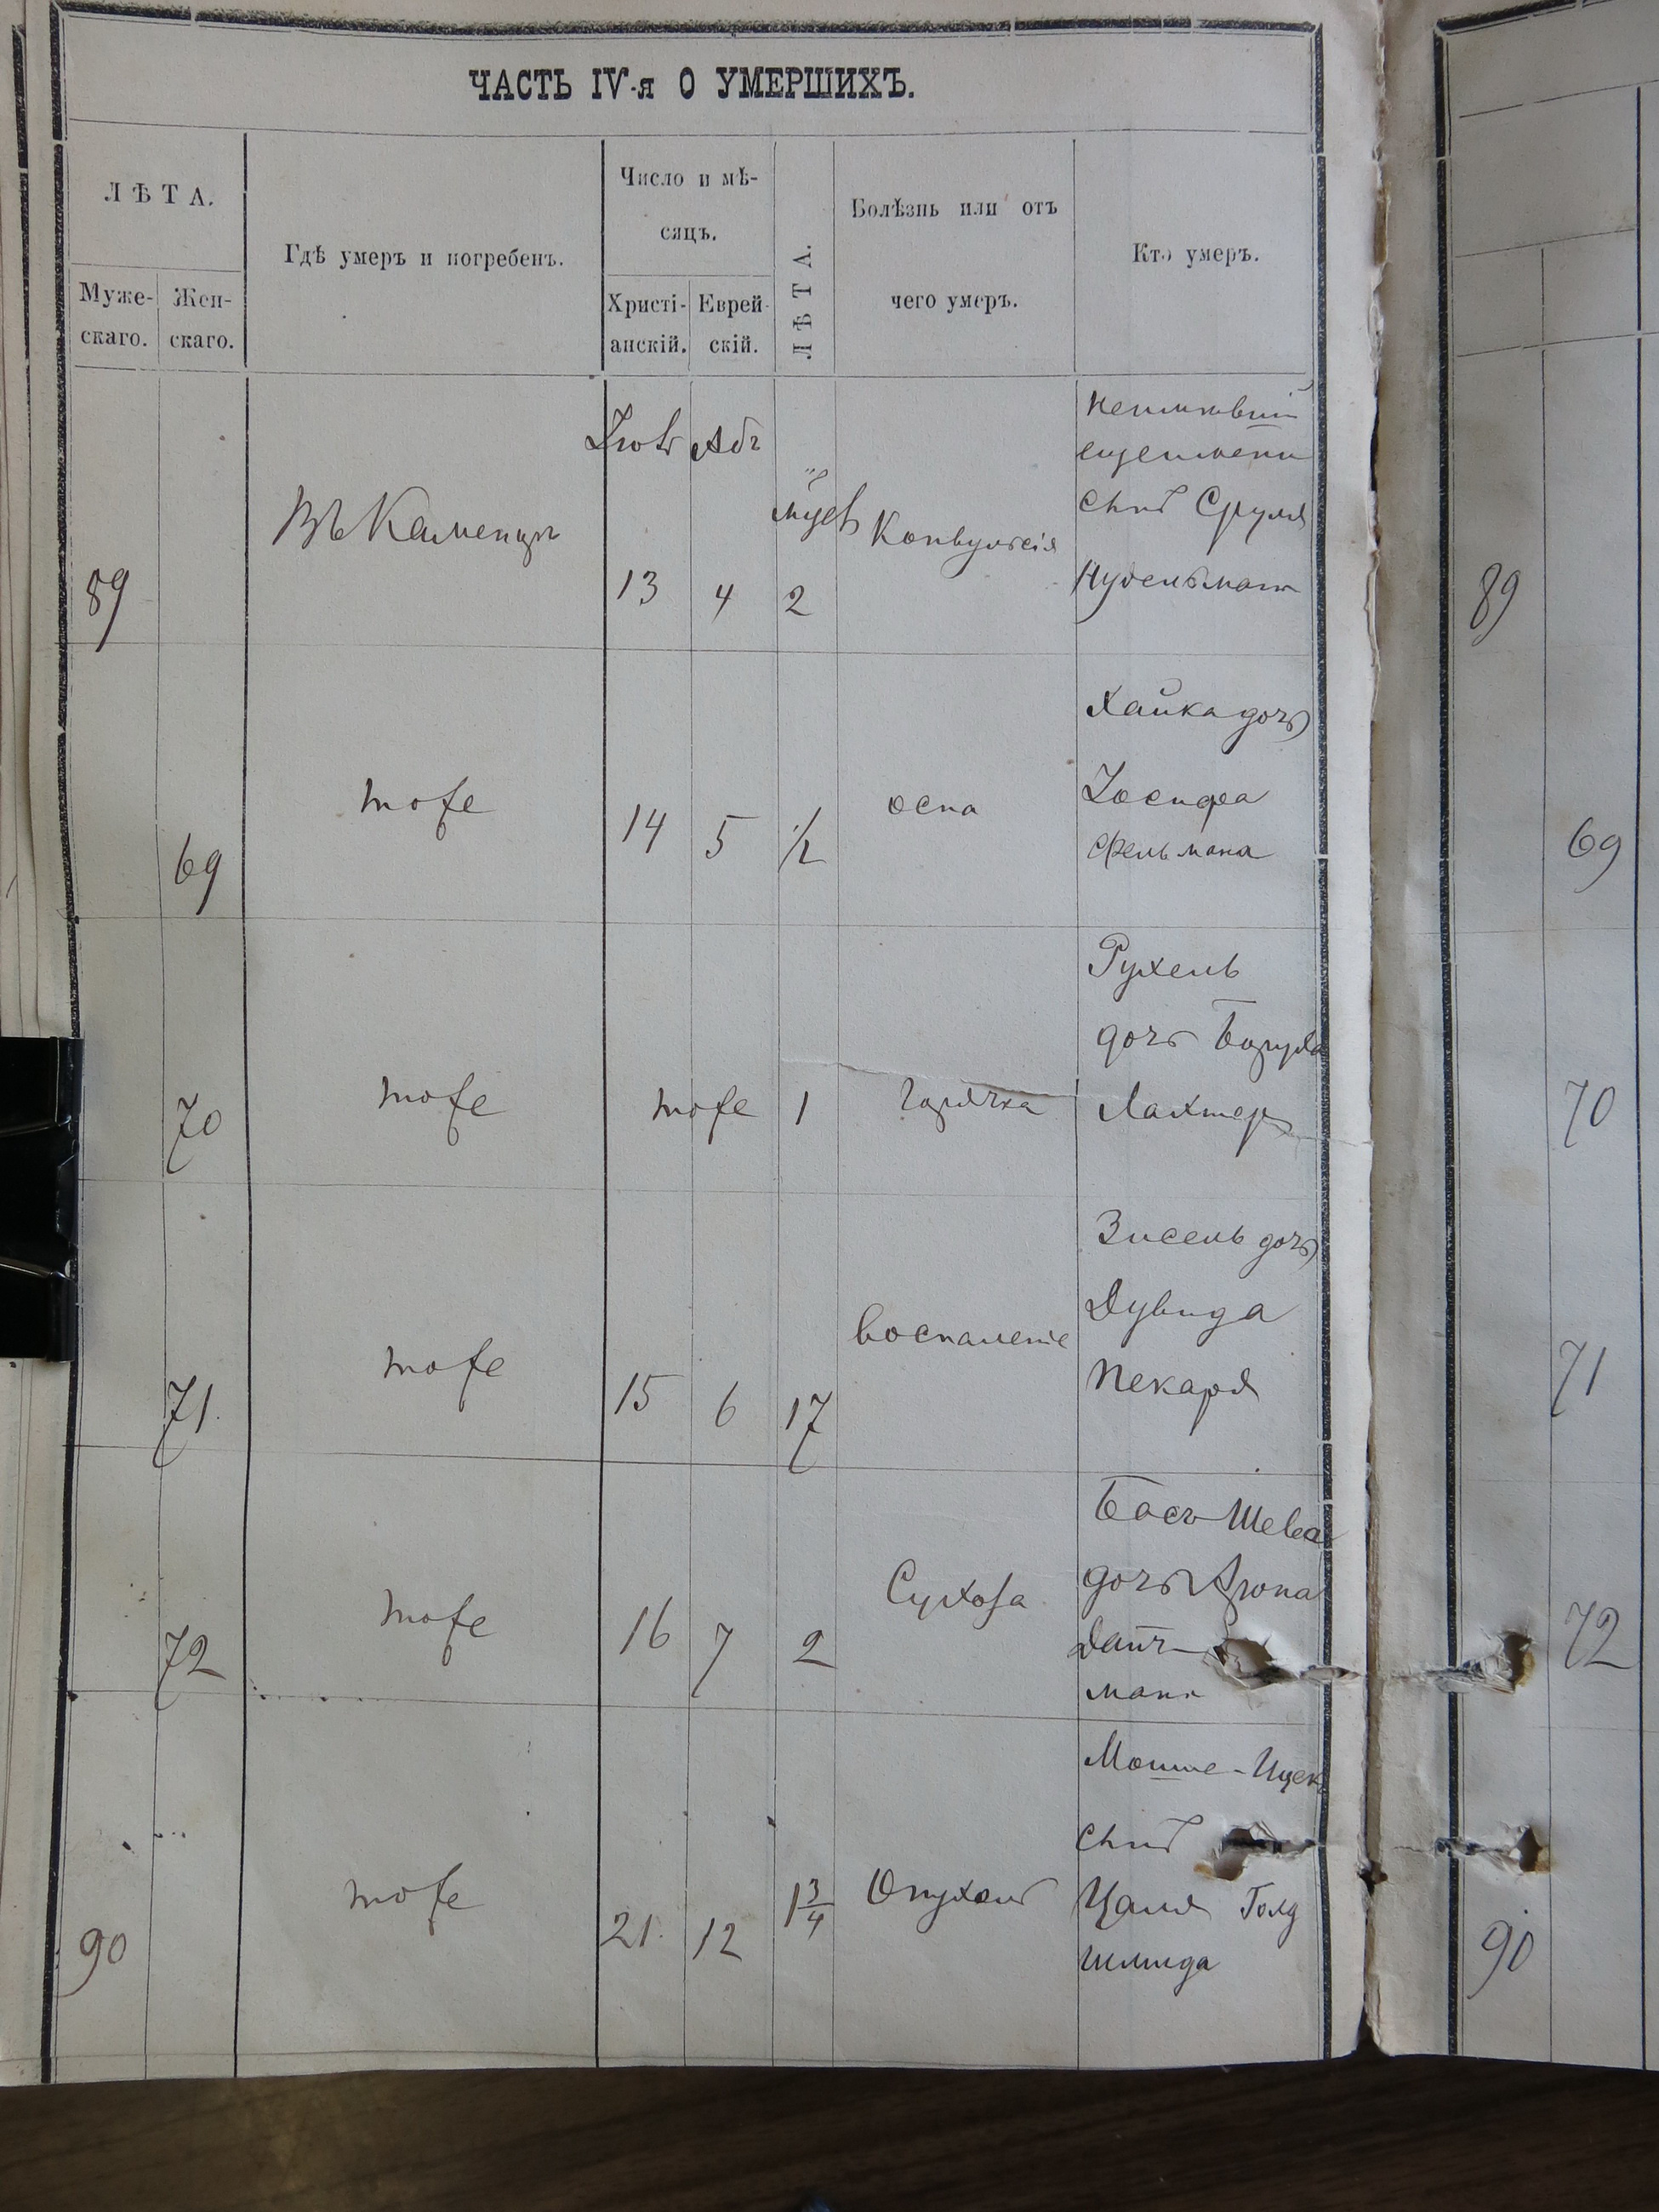 ЧАСТЬ IV-я О УМЕРШИХЪ.
ЛѢТА.
Муже-
скаго.
Жен-
скаго.
Гдѣ умеръ и погребенъ.
Число и мѣ-
сяцъ.
Христі-
анскій.
Еврей-
скій.
ЛѢТА.
Болѣзнь или отъ
чего умеръ.
Кто умеръ.
89
Въ Каменцѣ
Іюль Абъ
13 4 2
Конвульсія
неимѣвшій
еще имени
сынъ Сруля
Нудельман
89
69
тоже
14 5 1/2
оспа
Хайка дочь
Іосифа
Фельмана
69
70
тоже
тоже 1
горячка
Рухель
дочь Боруха
Лахтер
70
71
тоже
15 6 17
воспаленіе
Зисель дочь
Дувида
Пекаря
71
72
тоже
16 7 2
Сухота
Бась-Шева
дочь Арона
Дайч-
мана
72
90
тоже
21 12 1 3/4
Опухоль
Мошше-Ицек
сынъ
Цаля Голд
шмида
90